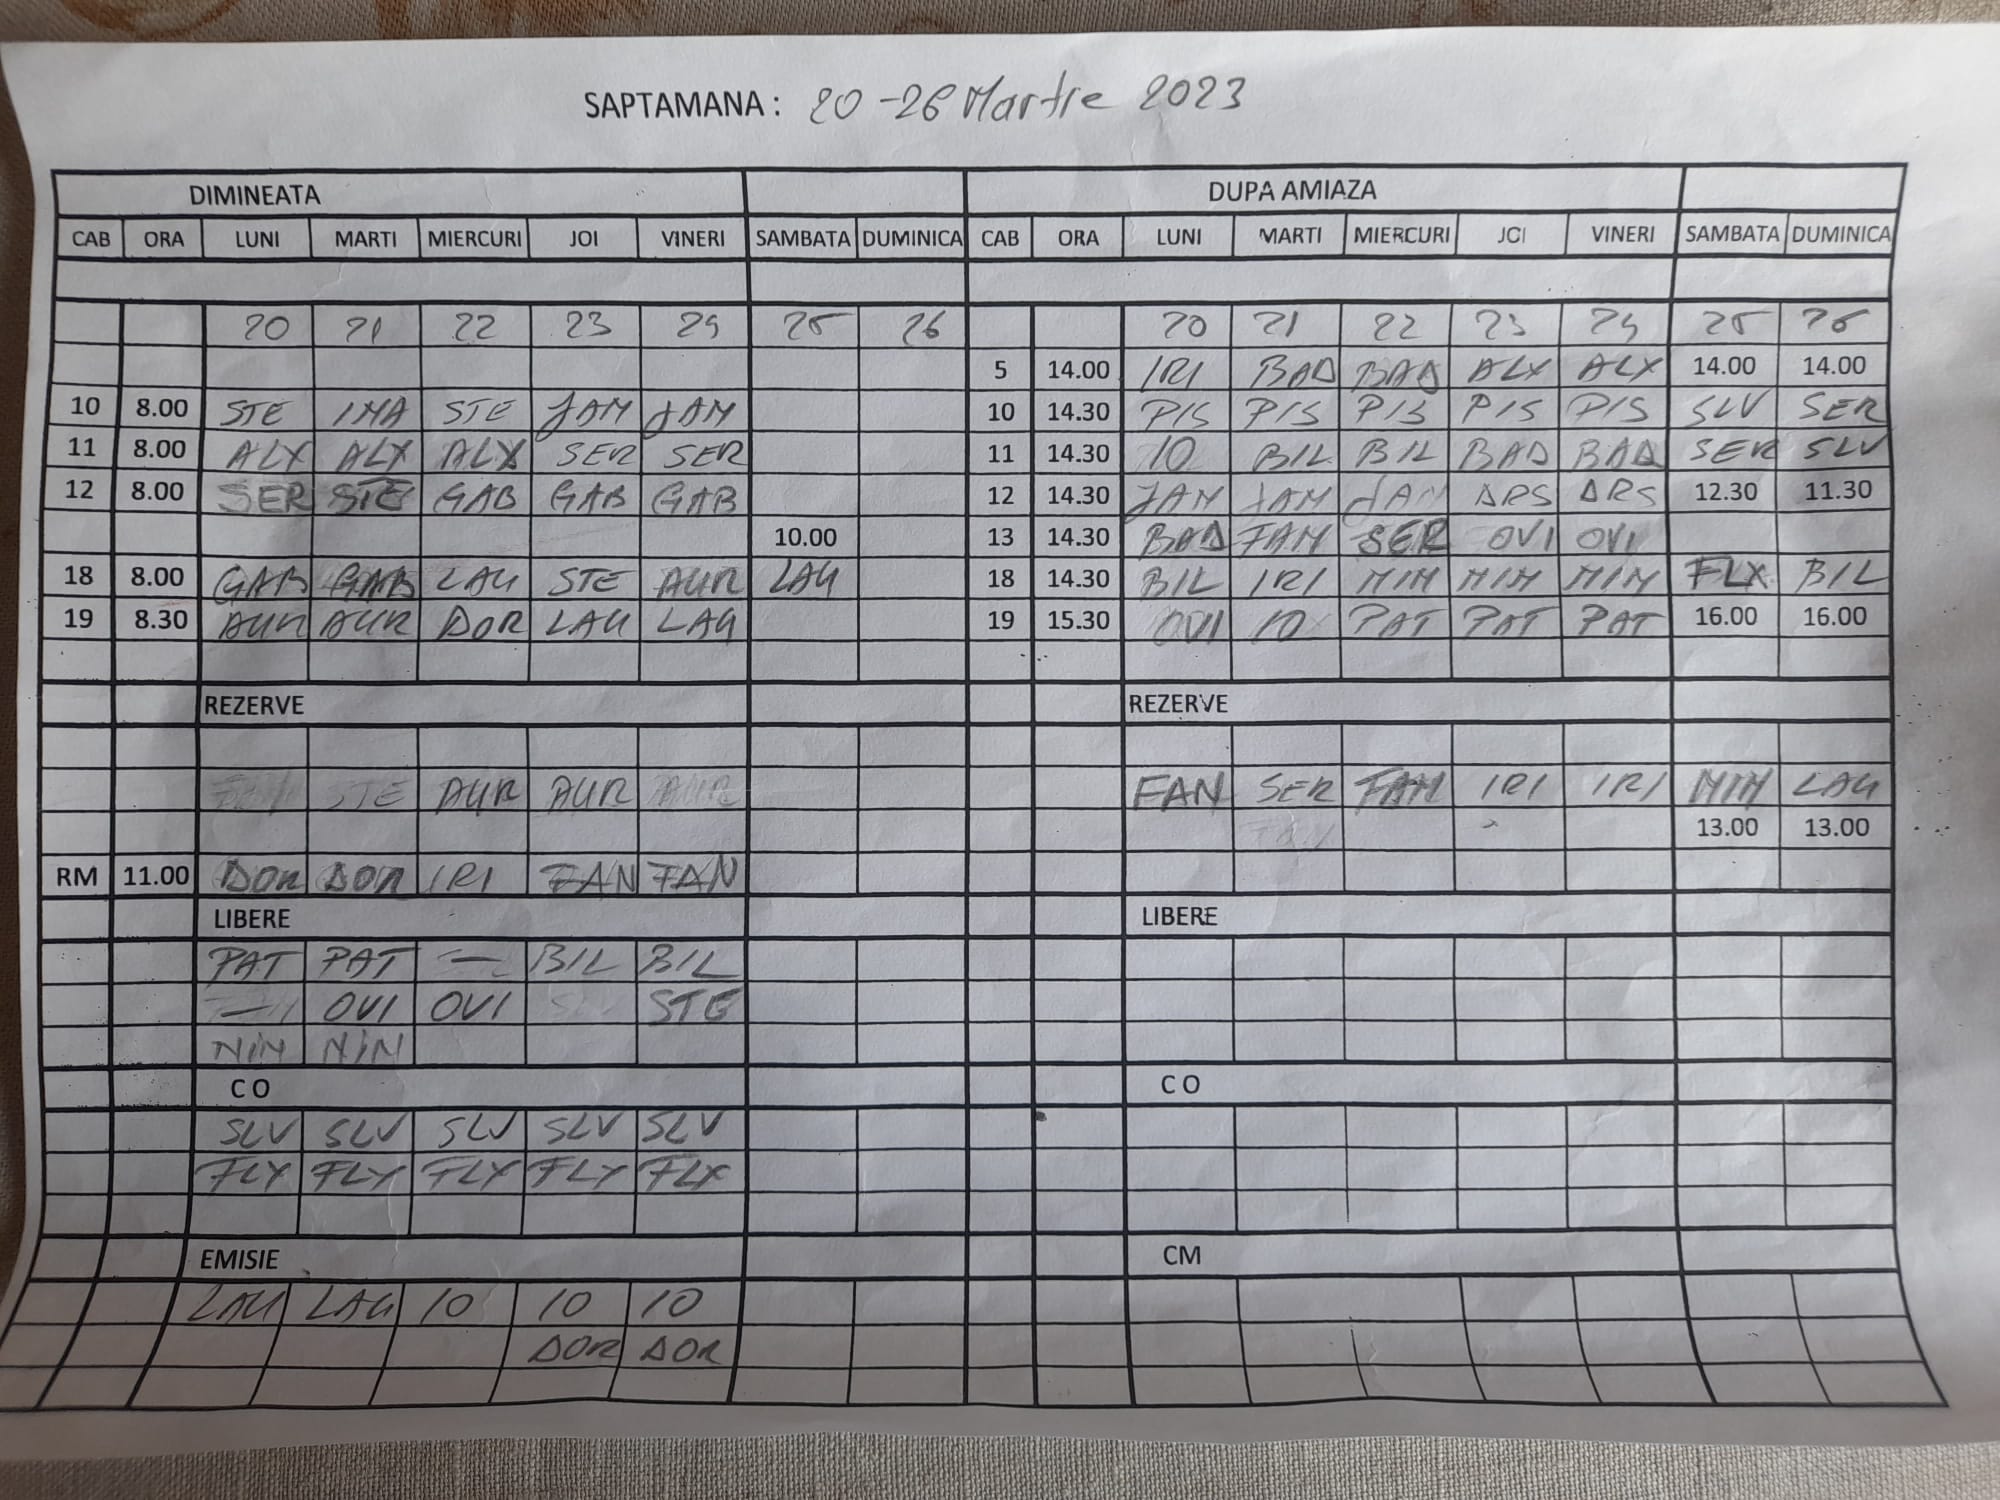 SAPTAMANA : 20-26 Martie 2023
DIMINEATA DUPA AMIAZA
CAB ORA LUNI MARTI MIERCURI JOI VINERI SAMBATA DUMINICA CAB ORA LUNI MARTI MIERCURI JOI VINERI SAMBATA DUMINICA
20 21 22 23 24 25 26 20 21 22 23 24 25 26
5 14.00 IRI BAD BAD ALX ALX 14.00 14.00
10 8.00 STE IMA STE JAM JAM 10 14.30 PIS PIS PIS PIS PIS SLV SER
11 8.00 ALX ALX ALX SER SER 11 14.30 10 BIL BIL BAD BAD SER SLV
12 8.00 SER STE GAB GAB GAB 12 14.30 JAM JAM JAM DRS DRS 12.30 11.30
10.00 13 14.30 BAD FAN SER OVI OVI
18 8.00 GAB GAB LAU STE AUR LAU 18 14.30 BIL IRI MIM MIM MIM FLX BIL
19 8.30 AUR AUR DOR LAU LAU 19 15.30 OVI 10 PAT PAT PAT 16.00 16.00
REZERVE REZERVE
STE AUR AUR AUR FAN SER FAN IRI IRI MIM LAU
13.00 13.00
RM 11.00 DOR DOR IRI FAN FAN
LIBERE LIBERE
PAT PAT — BIL BIL
— OVI OVI STE
NIN NIN
C O C O
SLV SLV SLV SLV SLV
FLX FLX FLX FLX FLX
EMISIE CM
LAU LAU 10 10 10
DOR DOR